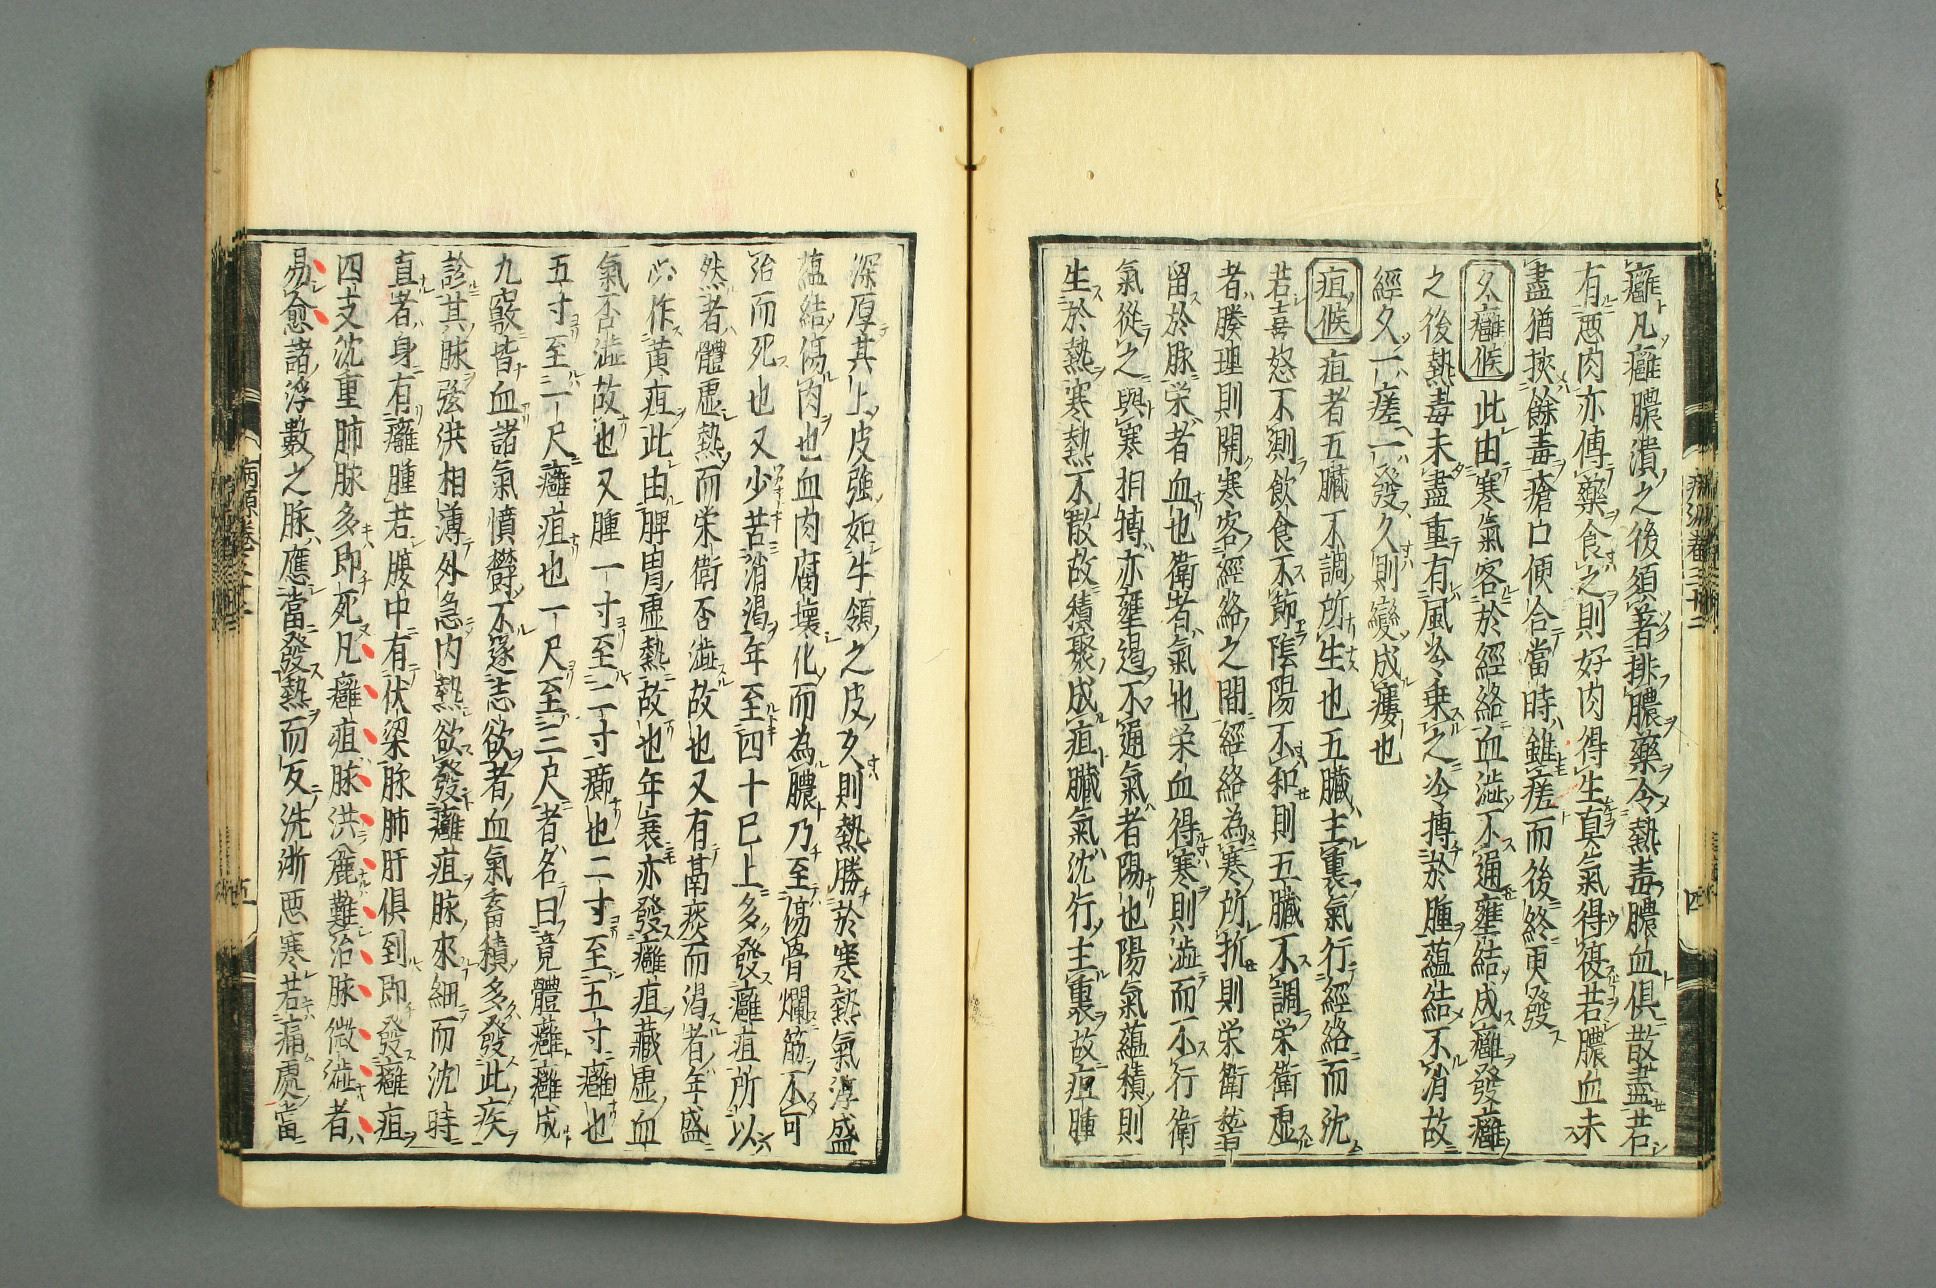 癰凡癰膿潰之後須著排膿藥令熱毒膿血俱散盡若
有惡肉亦傅藥食之則好肉得生真氣得復若膿血未
盡猶挾餘毒瘡口便合當時雖瘥而後終更發
久癰候此由寒氣客於經絡血澁不通壅結成癰發癰
之後熱毒未盡重有風冷乗之冷搏於腫蘊結不消故
經久一瘥一發久則變成瘻也
疽候疽者五臓不調所生也五臓主裏氣行經絡而沈
若喜怒不測飲食不節陰陽不和則五臓不調栄衛虛
者腠理則開寒客經絡之間經絡為寒所折則栄衛稽
留於脉栄者血也衛者氣也栄血得寒則澁而不行衛
氣從之與寒相摶亦壅遏不通氣者陽也陽氣蘊積則
生於熱寒熱不散故積聚成疽臓氣沈行主裏故疽腫
深厚其上皮強如牛領之皮久則熱勝於寒熱氣淳盛
蘊結傷肉也血肉腐壞化而為膿乃至傷骨爛筋不可
治而死也又少苦消渴年至四十已上多發癰疽所以
然者體虛熱而栄衛否澁故也又有鬲痰而渴者年盛
必作黄疸此由脾胃虛熱故也年衰亦發癰疽蔵虛血
氣否澁故也又腫一寸至二寸癤也二寸至五寸癰也
五寸至一尺癰疽也一尺至三尺者名曰竟體癰癰成
九竅皆血諸氣憤欝不遂志欲者血氣畜積多發此疾
診其脉弦洪相薄外急内熱欲發癰疽脉來細而沈時
直者身有癰腫若腹中有伏梁脉肺肝俱到即發癰疽
四支沈重肺脉多即死凡癰疽脉洪麁難治脉微澁者
易愈諸浮數之脉應當發熱而反洗淅惡寒若痛處當
病源卷三十二
四
病源卷三十二
五